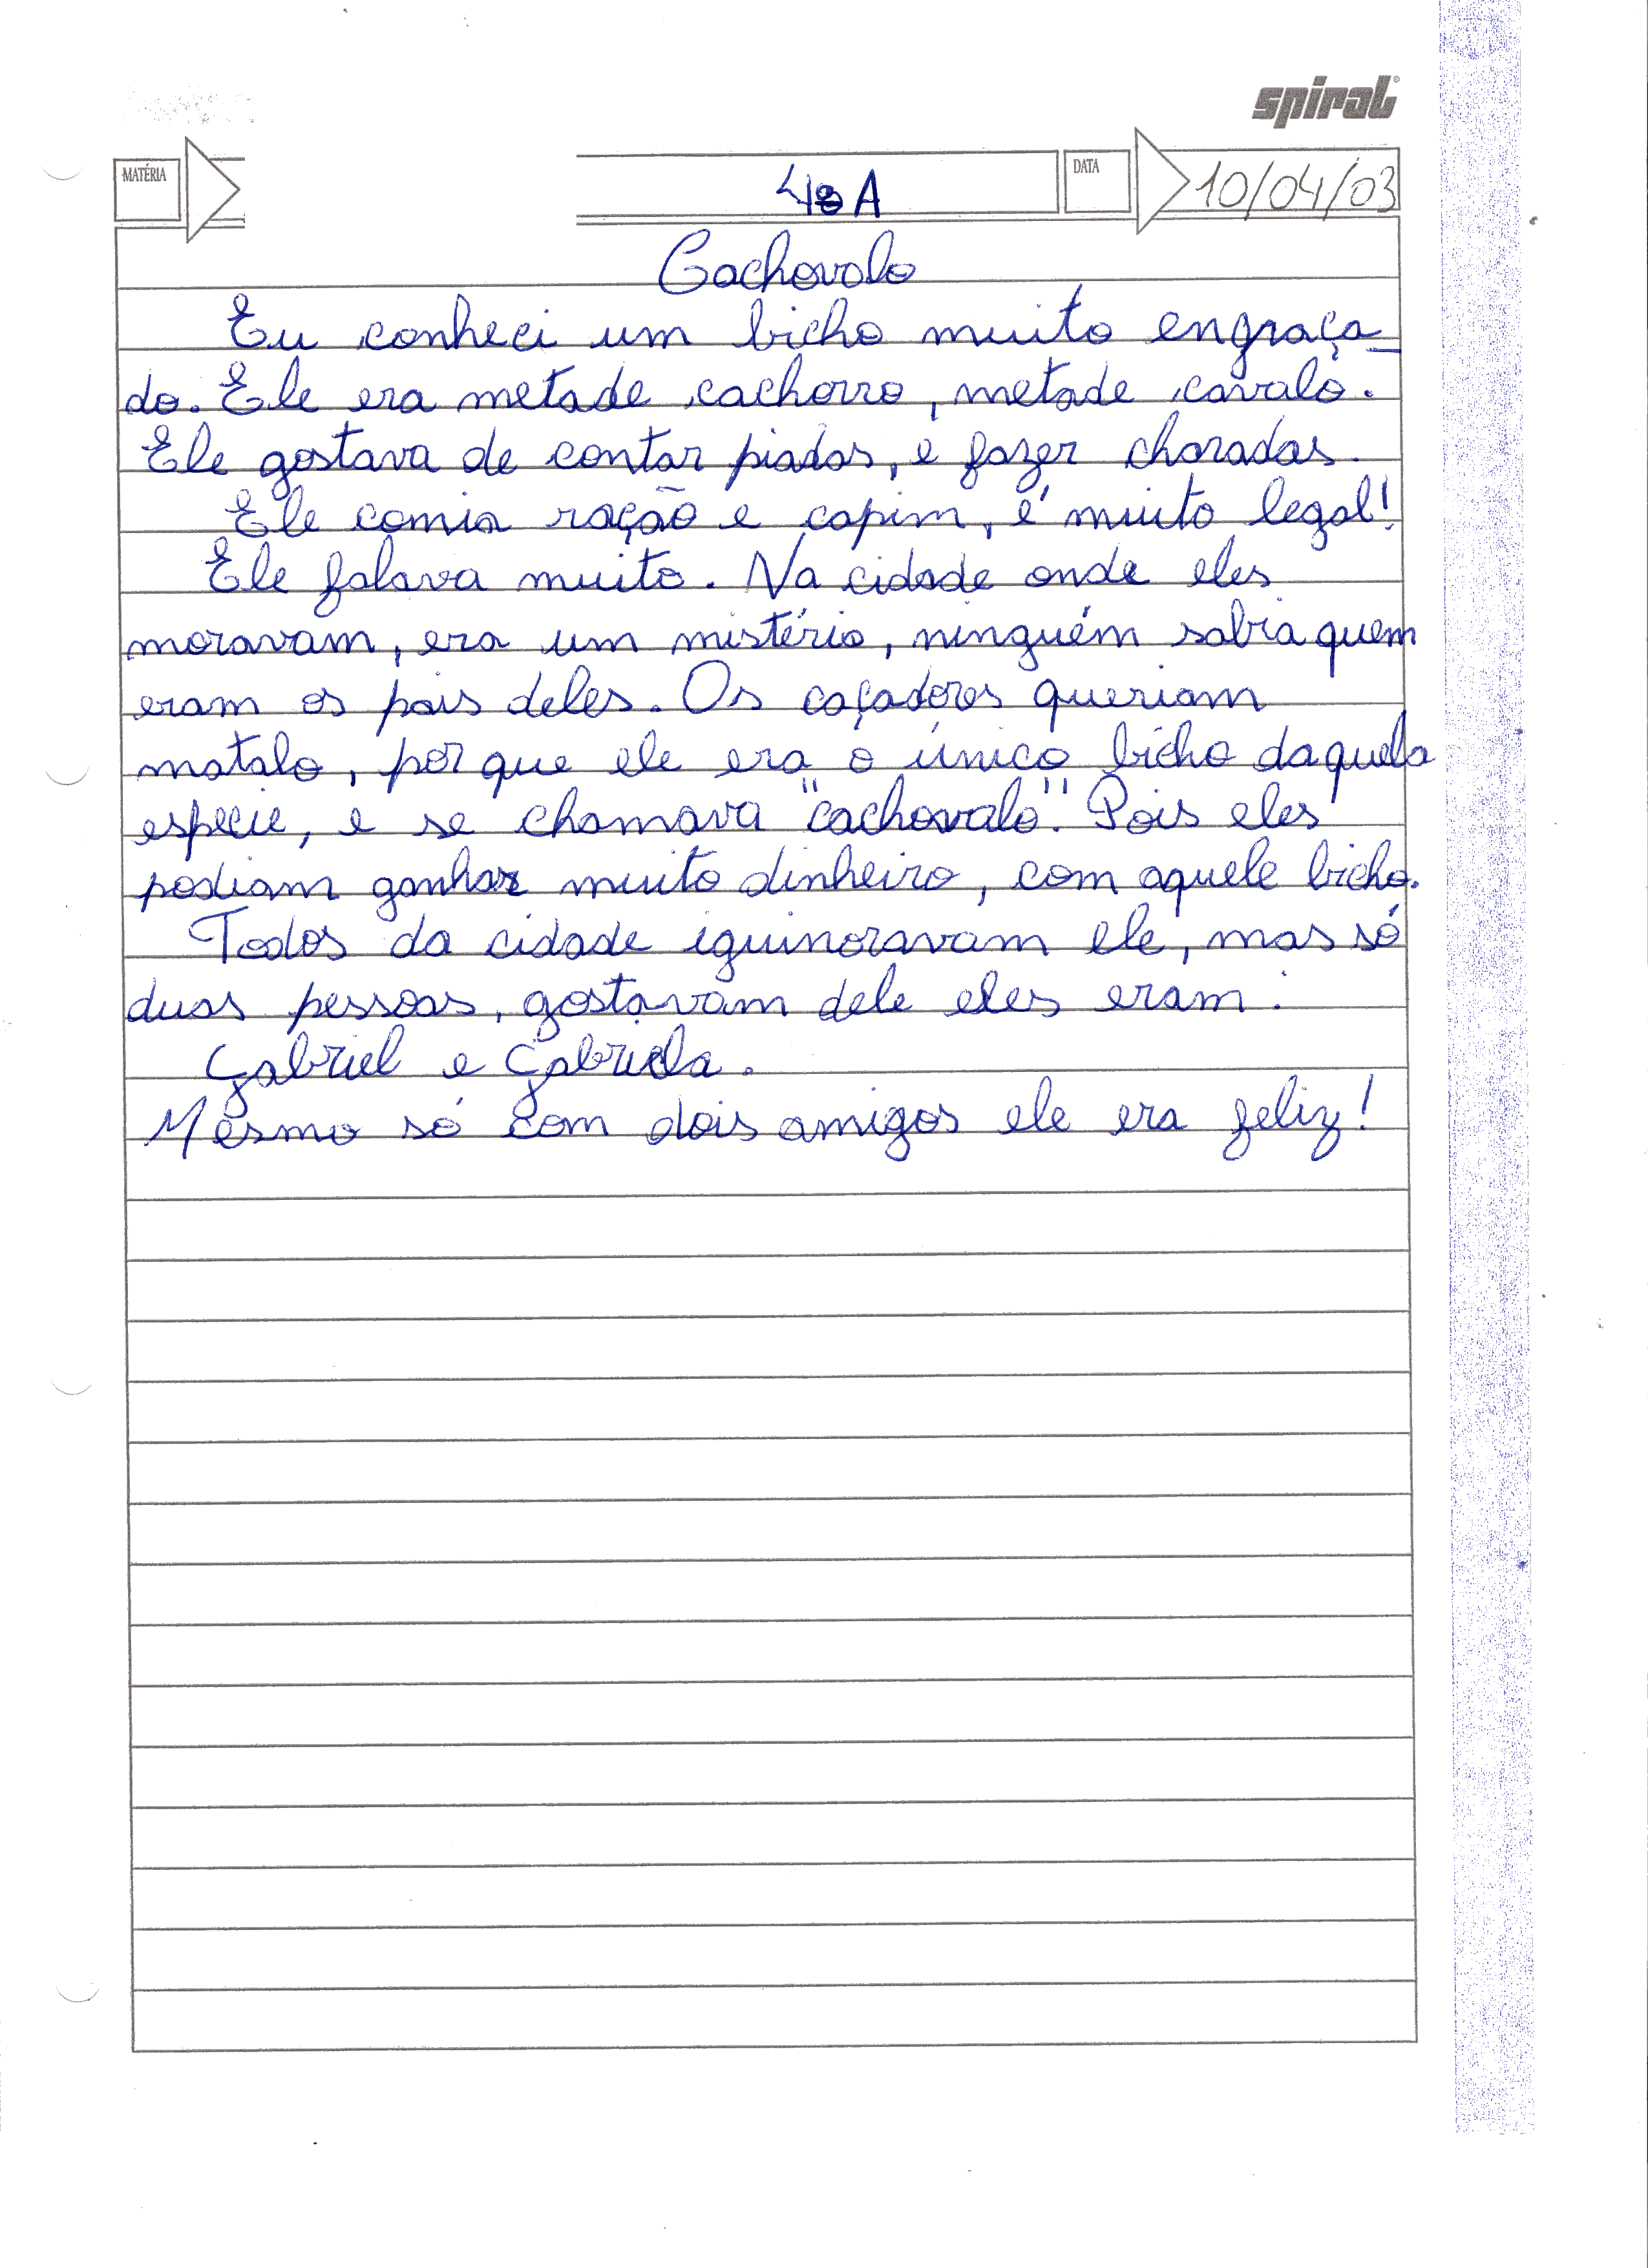 spiral
MATÉRIA
4ªA
DATA
10/04/03
Cachovalo
Eu conheci um bicho muito engraça-
do. Ele era metade cachorro, metade cavalo.
Ele gostava de contar piadas, e fazer charadas.
Ele comia ração e capim, é muito legal!
Ele falava muito. Na cidade onde eles
moravam, era um mistério, ninguém sabia quem
eram os pais deles. Os caçadores queriam
matalo, por que ele era o único bicho daquela
espécie, e se chamava "cachovalo". Pois eles
podiam ganhar muito dinheiro, com aquele bicho.
Todos da cidade iguinoravam ele, mas só
duas pessoas, gostavam dele eles eram:
Gabriel e Gabriela.
Mesmo só com dois amigos ele era feliz!